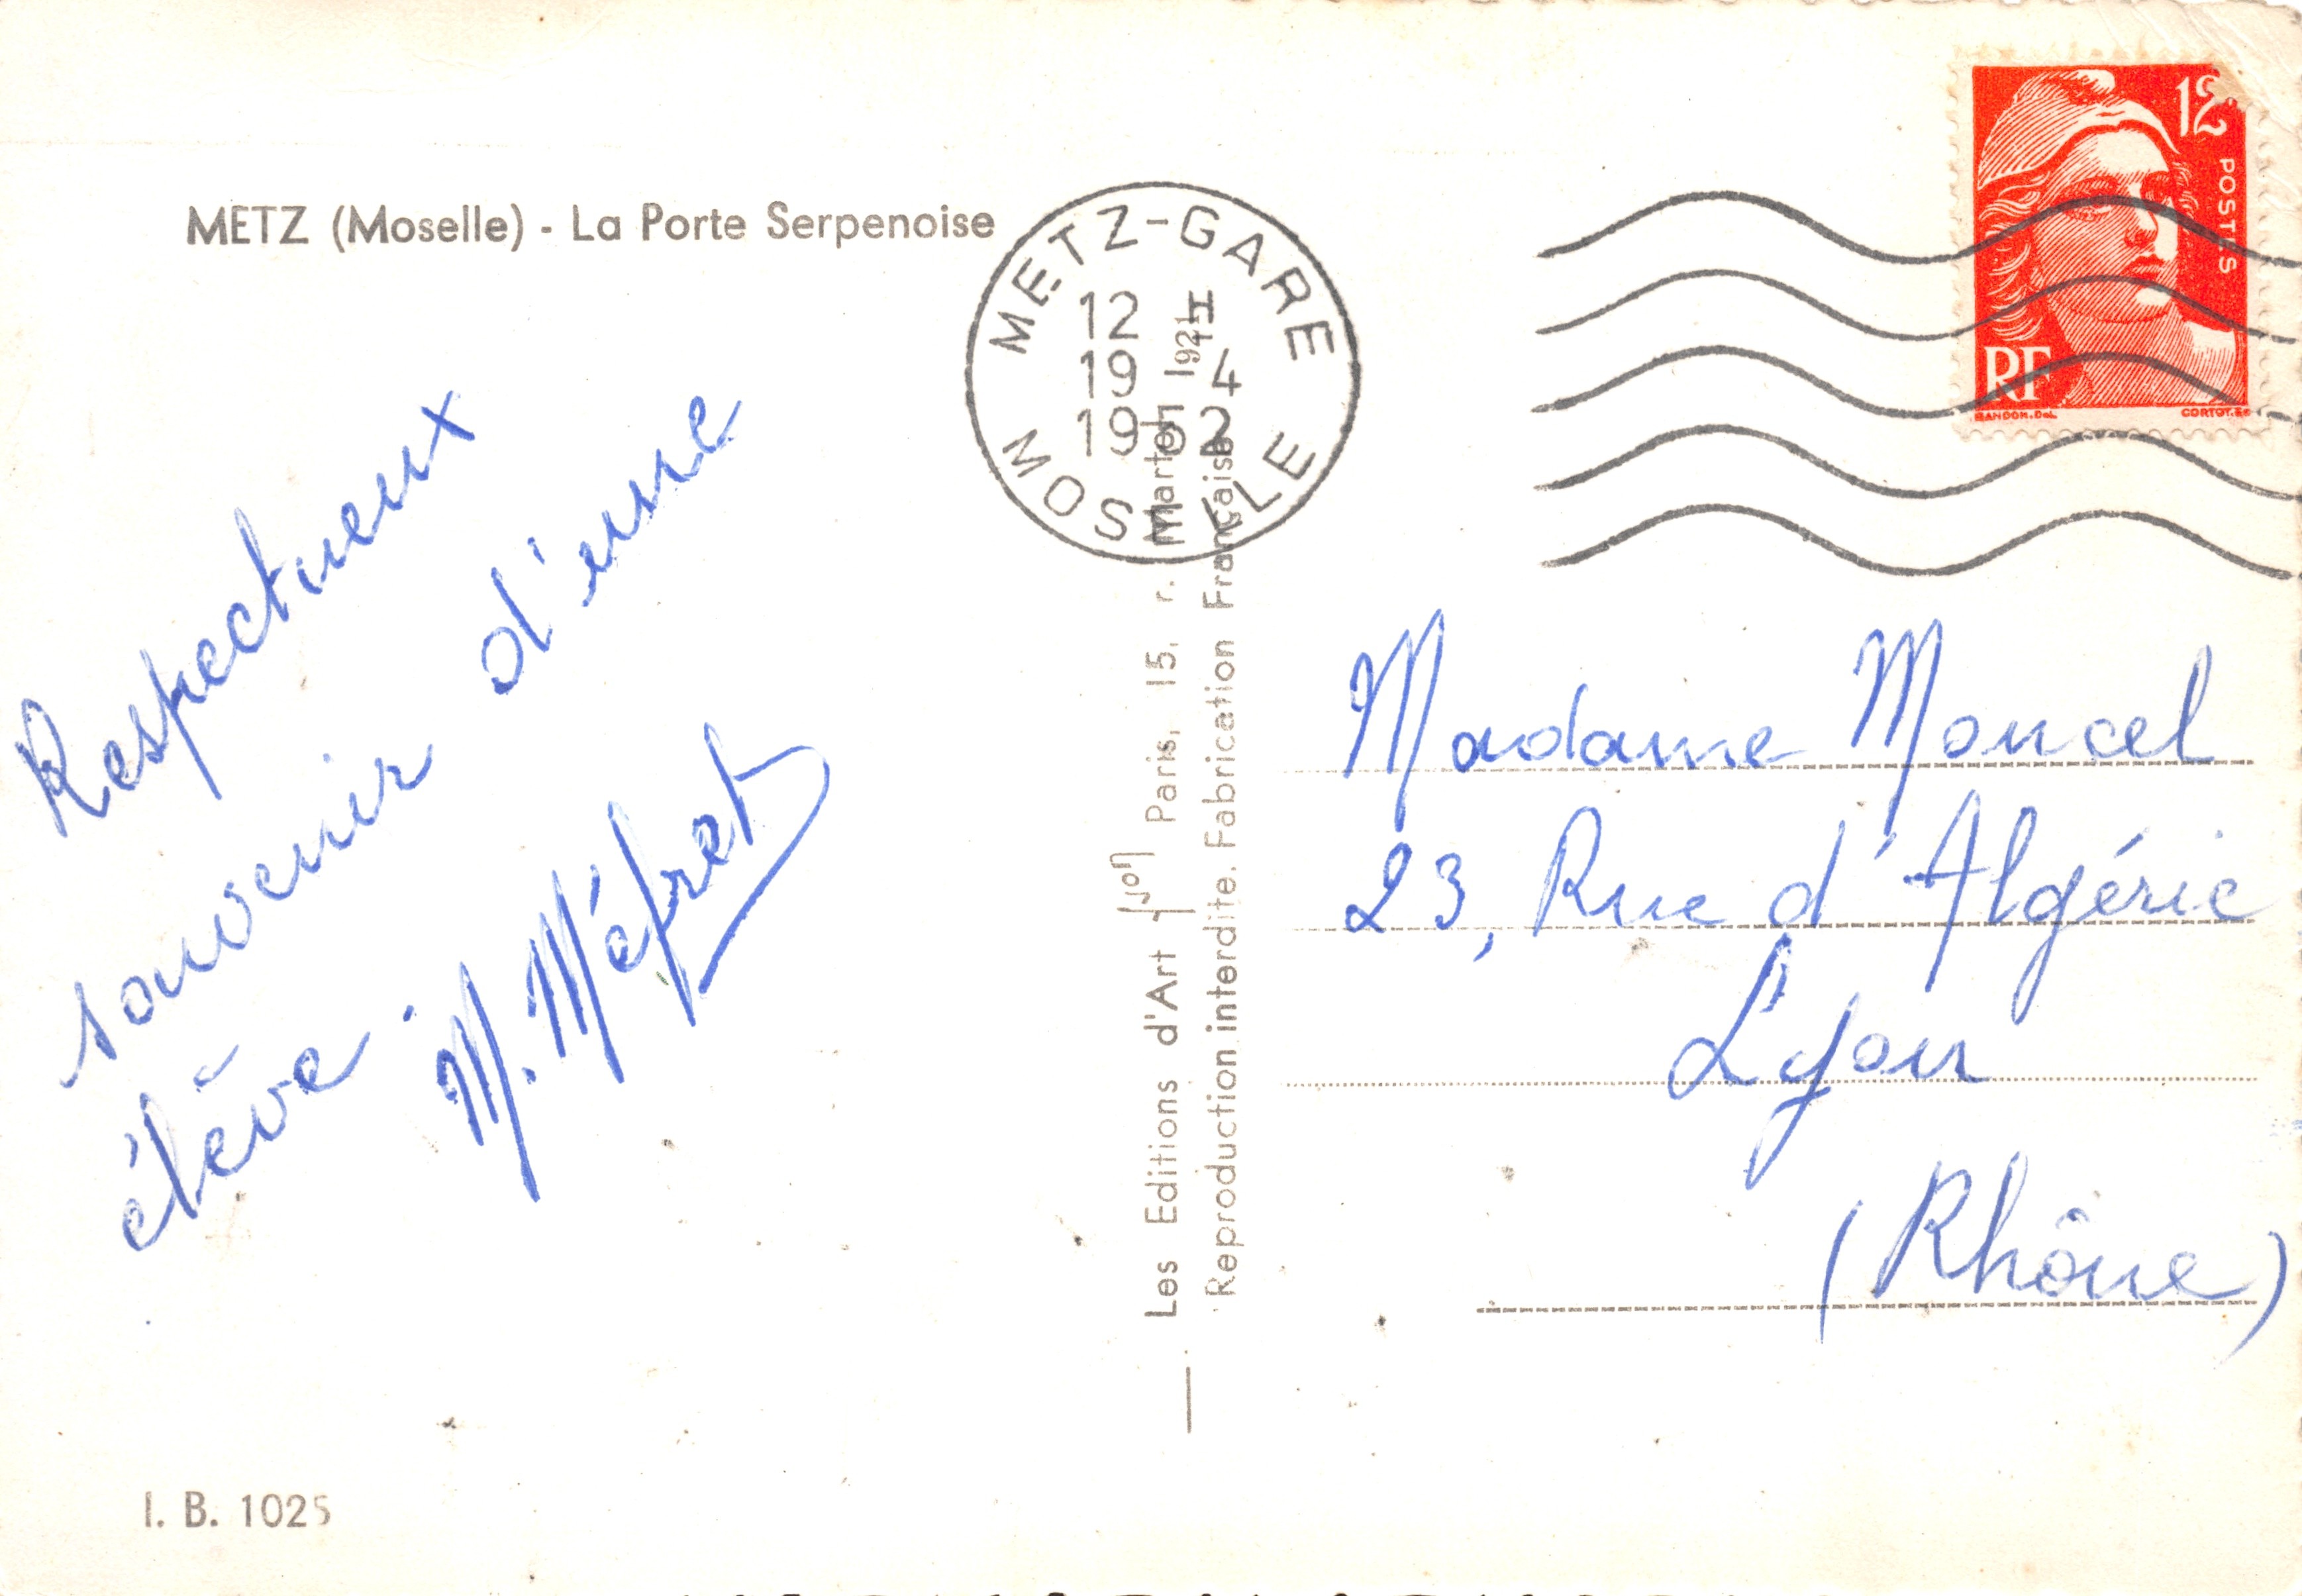 METZ (Moselle) - La Porte Serpenoise
Respectueux
souvenir d'une
élève.
M. Méfret
I. B. 1025
Les Editions d'Art Yvon Paris, 15, r. Martel 1921
Reproduction interdite. Fabrication Française
METZ-GARE
12 H
19 4
1952
MOSELLE
12
POSTES
RF
GANDON.DEL
CORTOT.SC
Madame Moncel
23, Rue d'Algérie
Lyon
(Rhône)